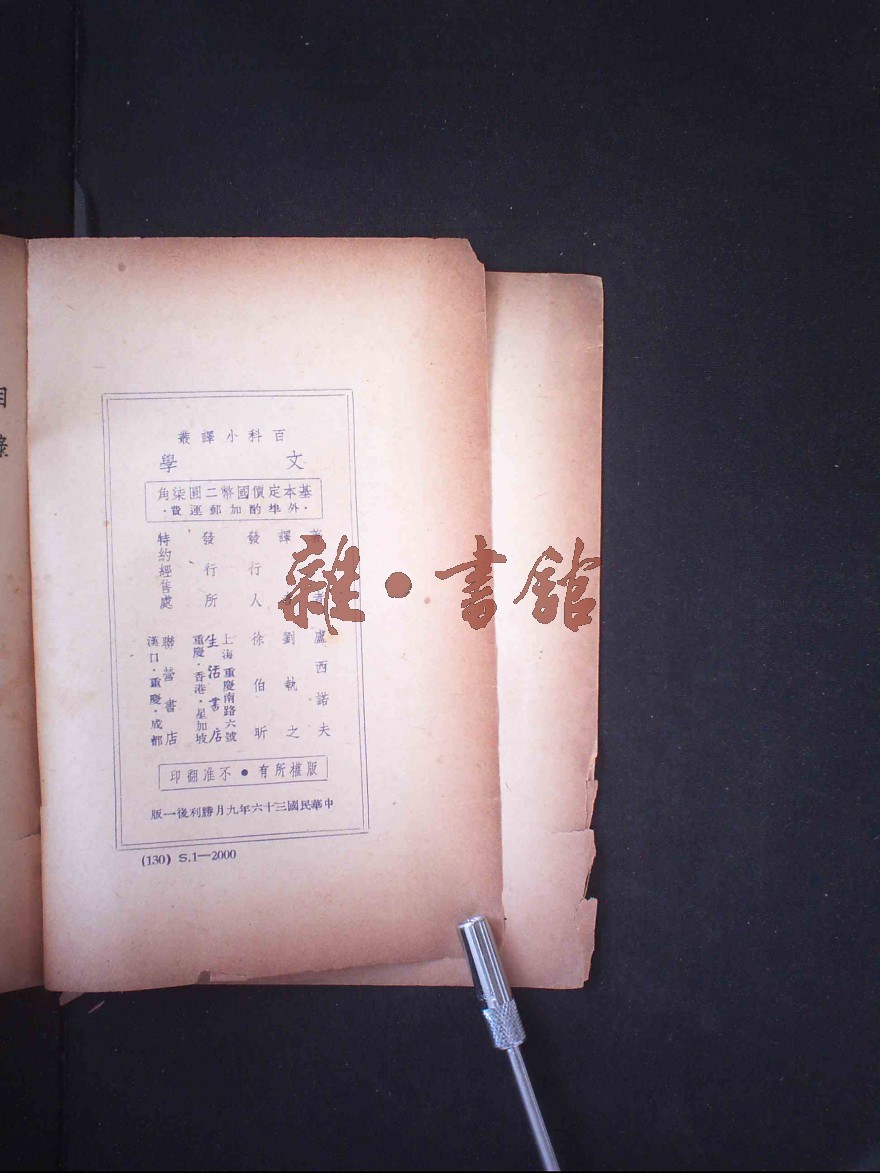 百科小譯叢
文學
基本定價國幣二圓柒角
·外埠酌加郵運費·
著者 盧西諾夫
譯者 劉執之
發行人 徐伯昕
發行所 生活書店
上海重慶南路六號
重慶·香港·星加坡
特約經售處 聯營書店
漢口·重慶·成都
版權所有●不准翻印
中華民國三十六年九月勝利後一版
(130) S.1—2000
目錄
雜·書館